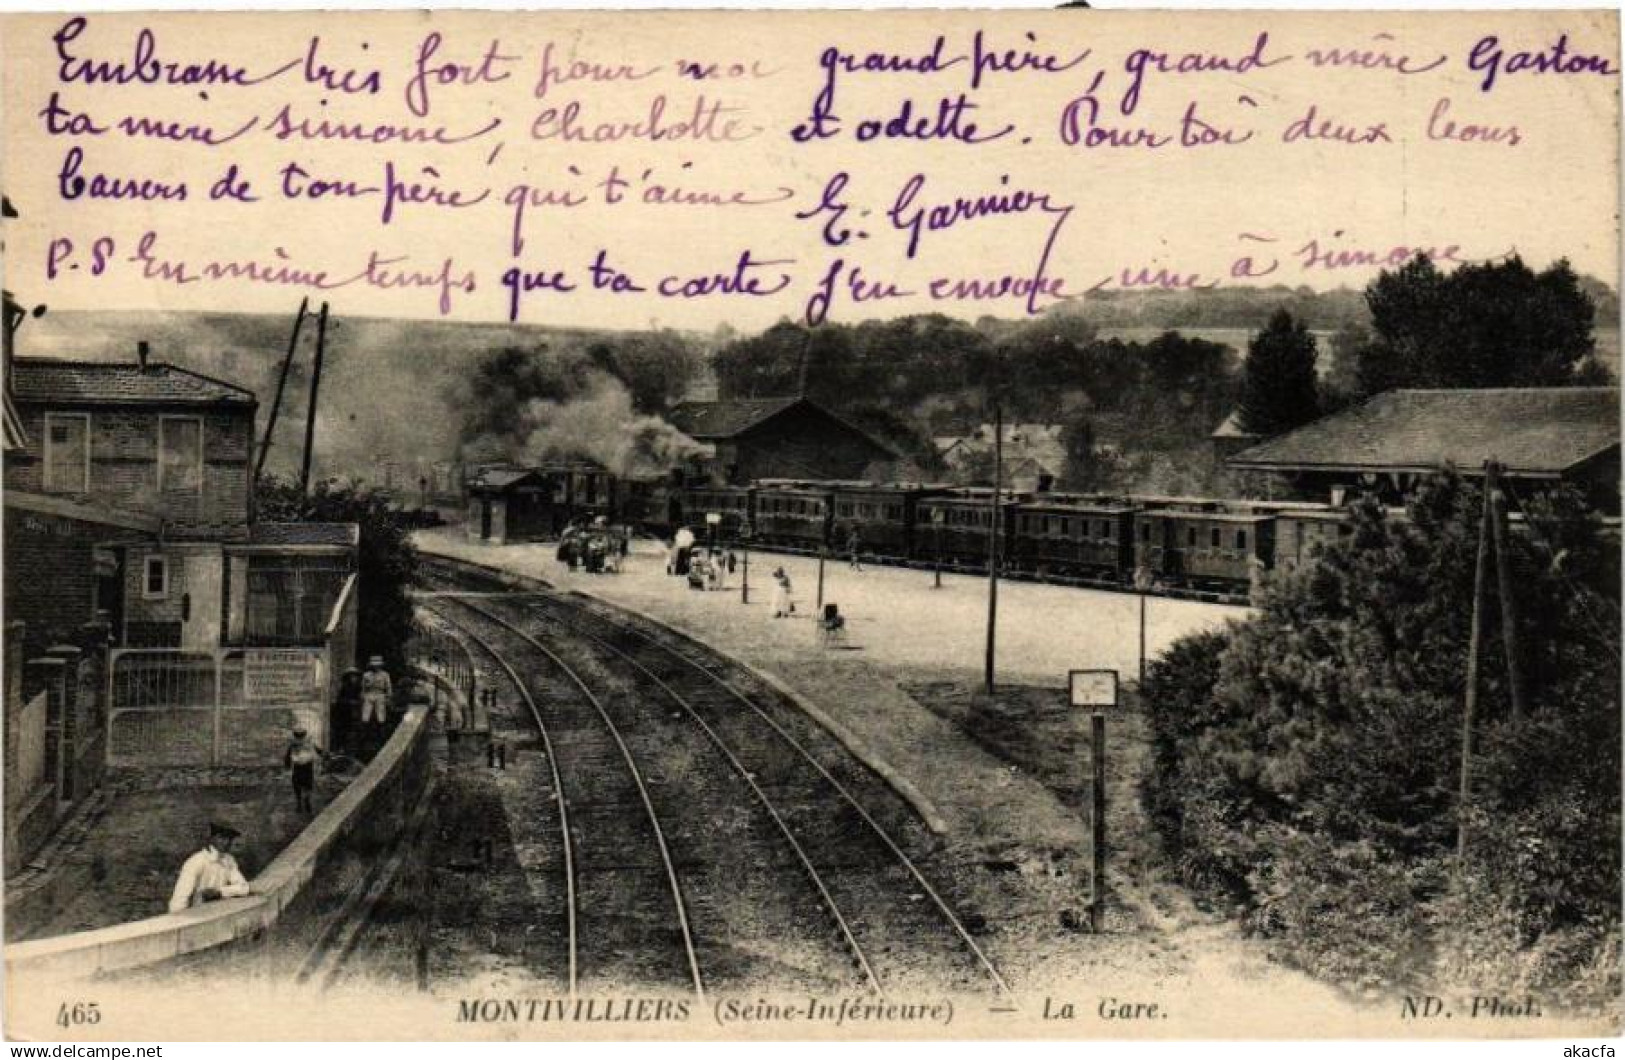 Embrasse très fort pour moi grand père, grand mère Gaston
ta mère simone, Charlotte et odette. Pour toi deux bons
baisers de ton père qui t'aime E. Garnier
P.S En même temps que ta carte J'en envoie une à simone
465
MONTIVILLIERS (Seine-Inférieure) — La Gare.
ND. Phot.
akacfa
delcampe.net